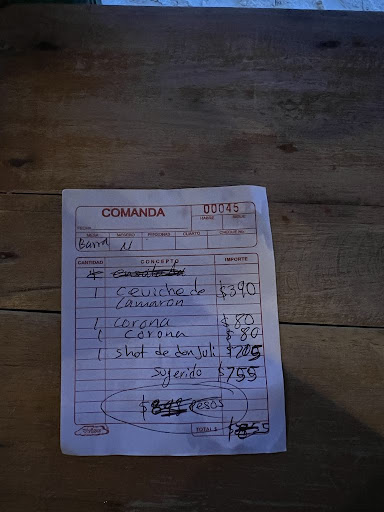 COMANDA
00045
FECHA
MESA MESERO PERSONAS CUARTO
Barra N
CANTIDAD CONCEPTO IMPORTE
1 Ceviche de $390
Camaron
1 corona $80
1 corona $80
1 shot de don juli
sugerido $755
pesos
TOTAL $